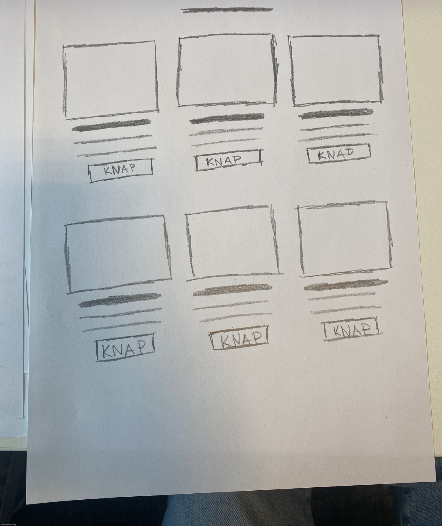 KNAP
KNAP
KNAP
KNAP
KNAP
KNAP